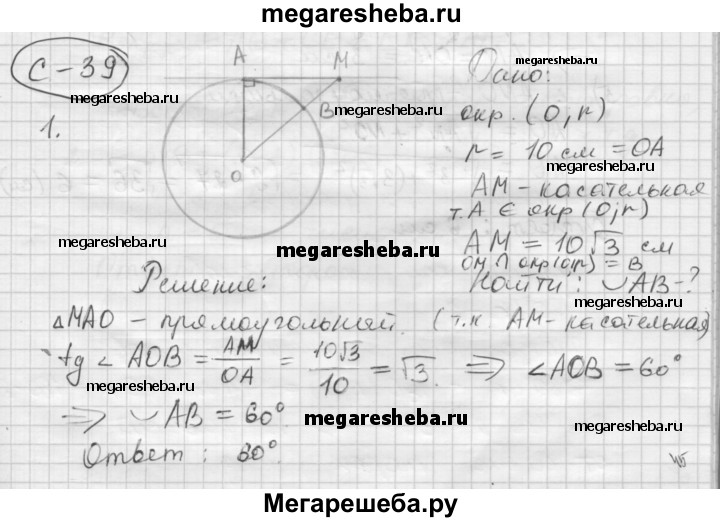 megaresheba.ru
С-39
megaresheba.ru
1.
A M
B
O
megaresheba.ru
megaresheba.ru
Дано:
megaresheba.ru
окр. (O, r)
r = 10 см = OA
megaresheba.ru
AM - касательная
т. A ∈ окр (O; r)
megaresheba.ru
AM = 10√3 см
OM ∩ окр(O; r) = B
Найти: ◡AB-?
megaresheba.ru
Решение:
△MAO - прямоугольный. (т.к. AM - касательная)
megaresheba.ru
tg ∠ AOB = AM/OA = 10√3/10 = √3. ⇒ ∠AOB = 60°
megaresheba.ru
⇒ ◡ AB = 60°.
megaresheba.ru
megaresheba.ru
Ответ: 60°.
megaresheba.ru
Мегарешеба.ру